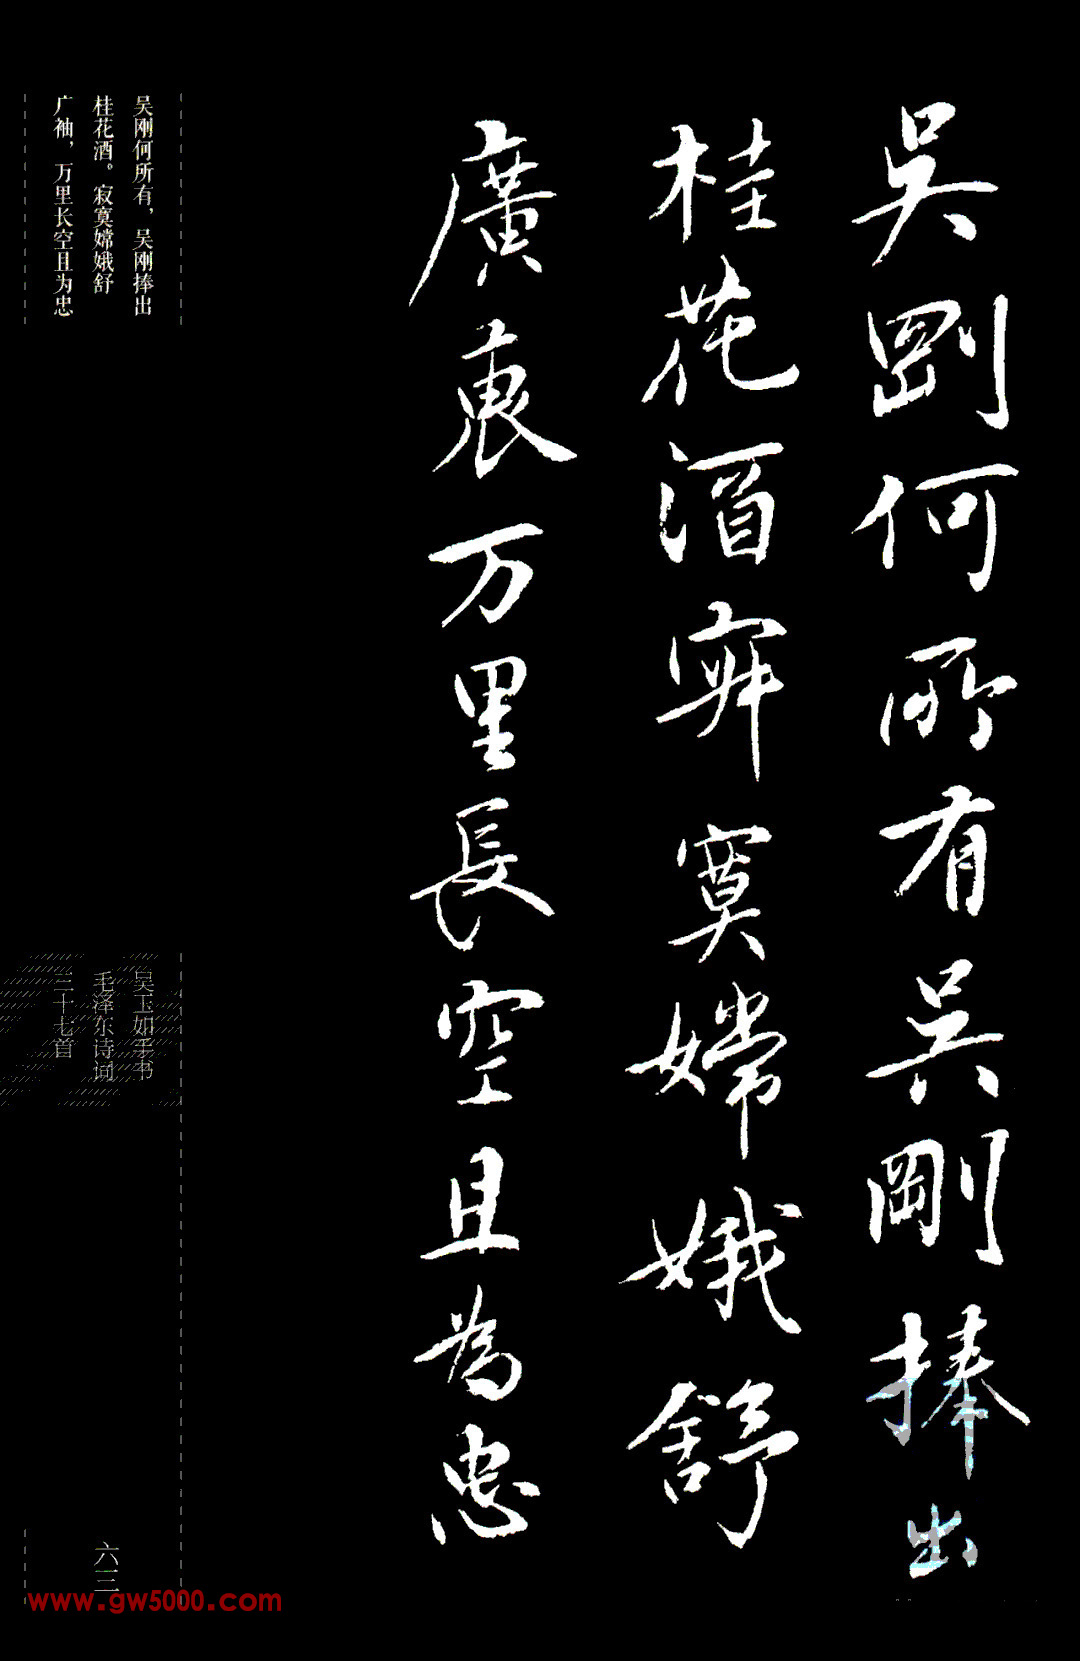 吳剛何所有吳剛捧出
桂花酒寂寞嫦娥舒
廣袖万里長空且為忠
吴刚何所有，吴刚捧出
桂花酒。寂寞嫦娥舒
广袖，万里长空且为忠
吴玉如手书
毛泽东诗词
三十七首
六三
www.gw5000.com